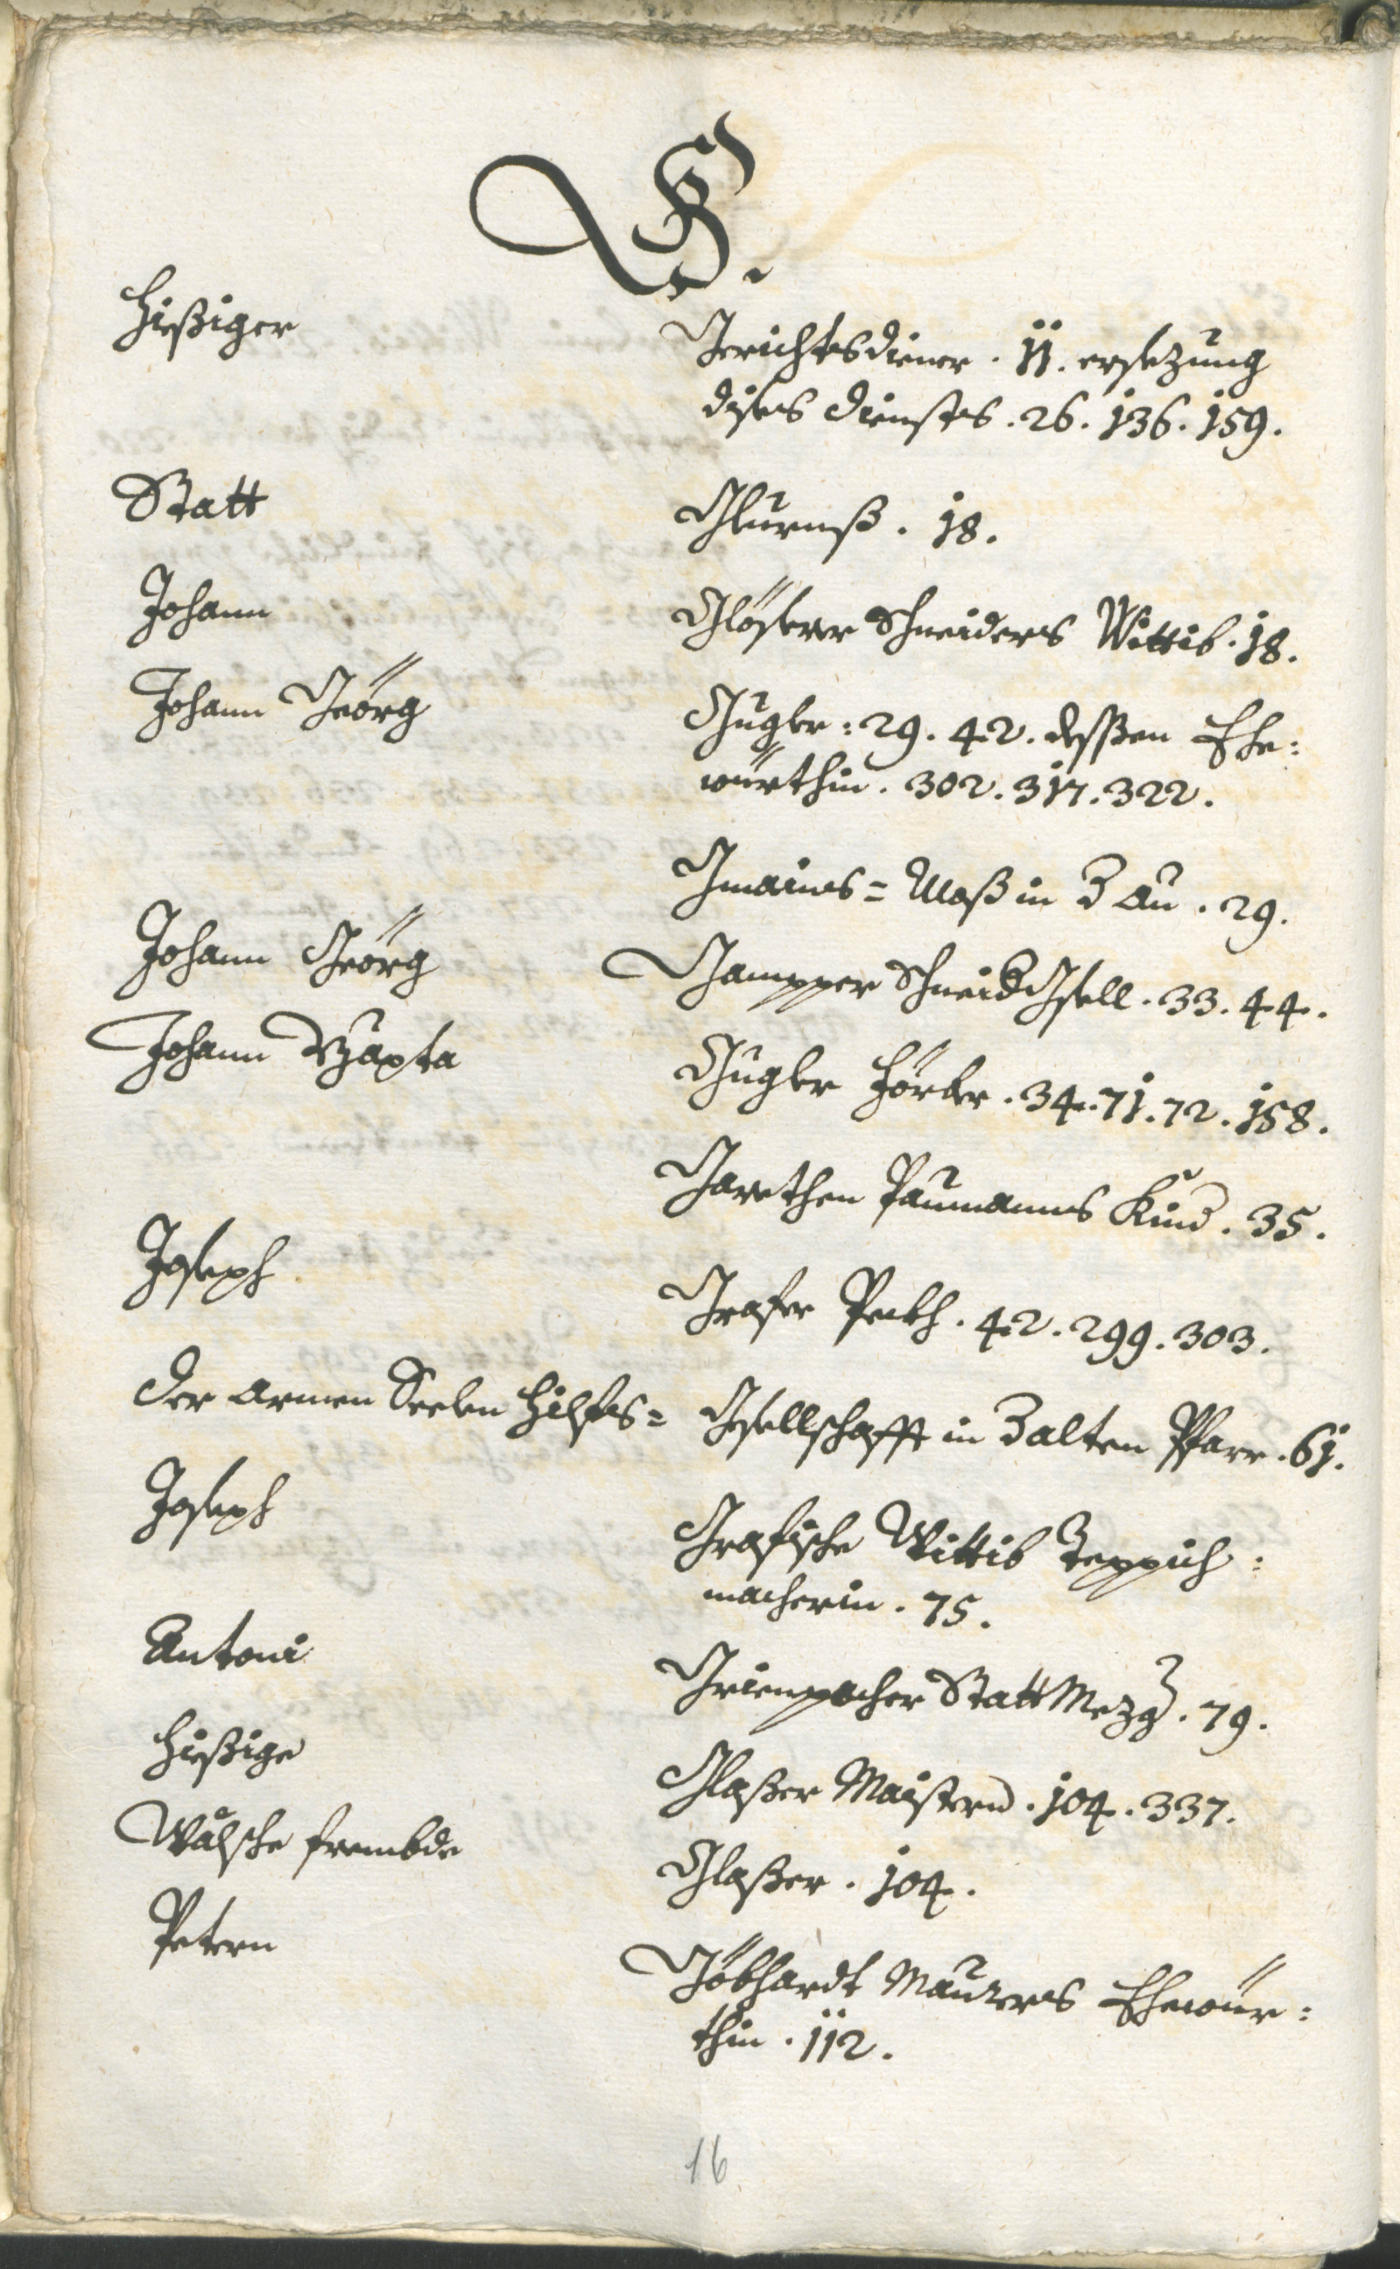 G.
Hießiger Gerichtsdiener. 11. ersezung
dises Diensts. 26. 136. 159.
Statt Glurnß. 18.
Johann Glöserer Schneiders Wittib. 18.
Johann Geörg Gugler: 29. 42. dessßen Ehe:
würthin. 302. 317. 322.
Gmains= Moß in Z Au. 29.
Johann Geörg Gampper Schneid Gsell. 33. 44.
Johann Bapta Gugler Förber. 34. 71. 72. 158.
Garethen Paumanns Kind. 35.
Joseph Graser Peckh. 42. 299. 303.
Der armen Seelen Hilfs= Gsellschafft in Z alten Pfarr. 61.
Joseph Grafische Wittib Teppich:
macherin. 75.
Antoni Grienpacher Statt Mezg. 79.
Hießige Glaßer Maistern. 104. 337.
Wälsche frembde Glaßer. 104.
Petern Göbhardt Maurers Ehewür:
thin. 112.
16